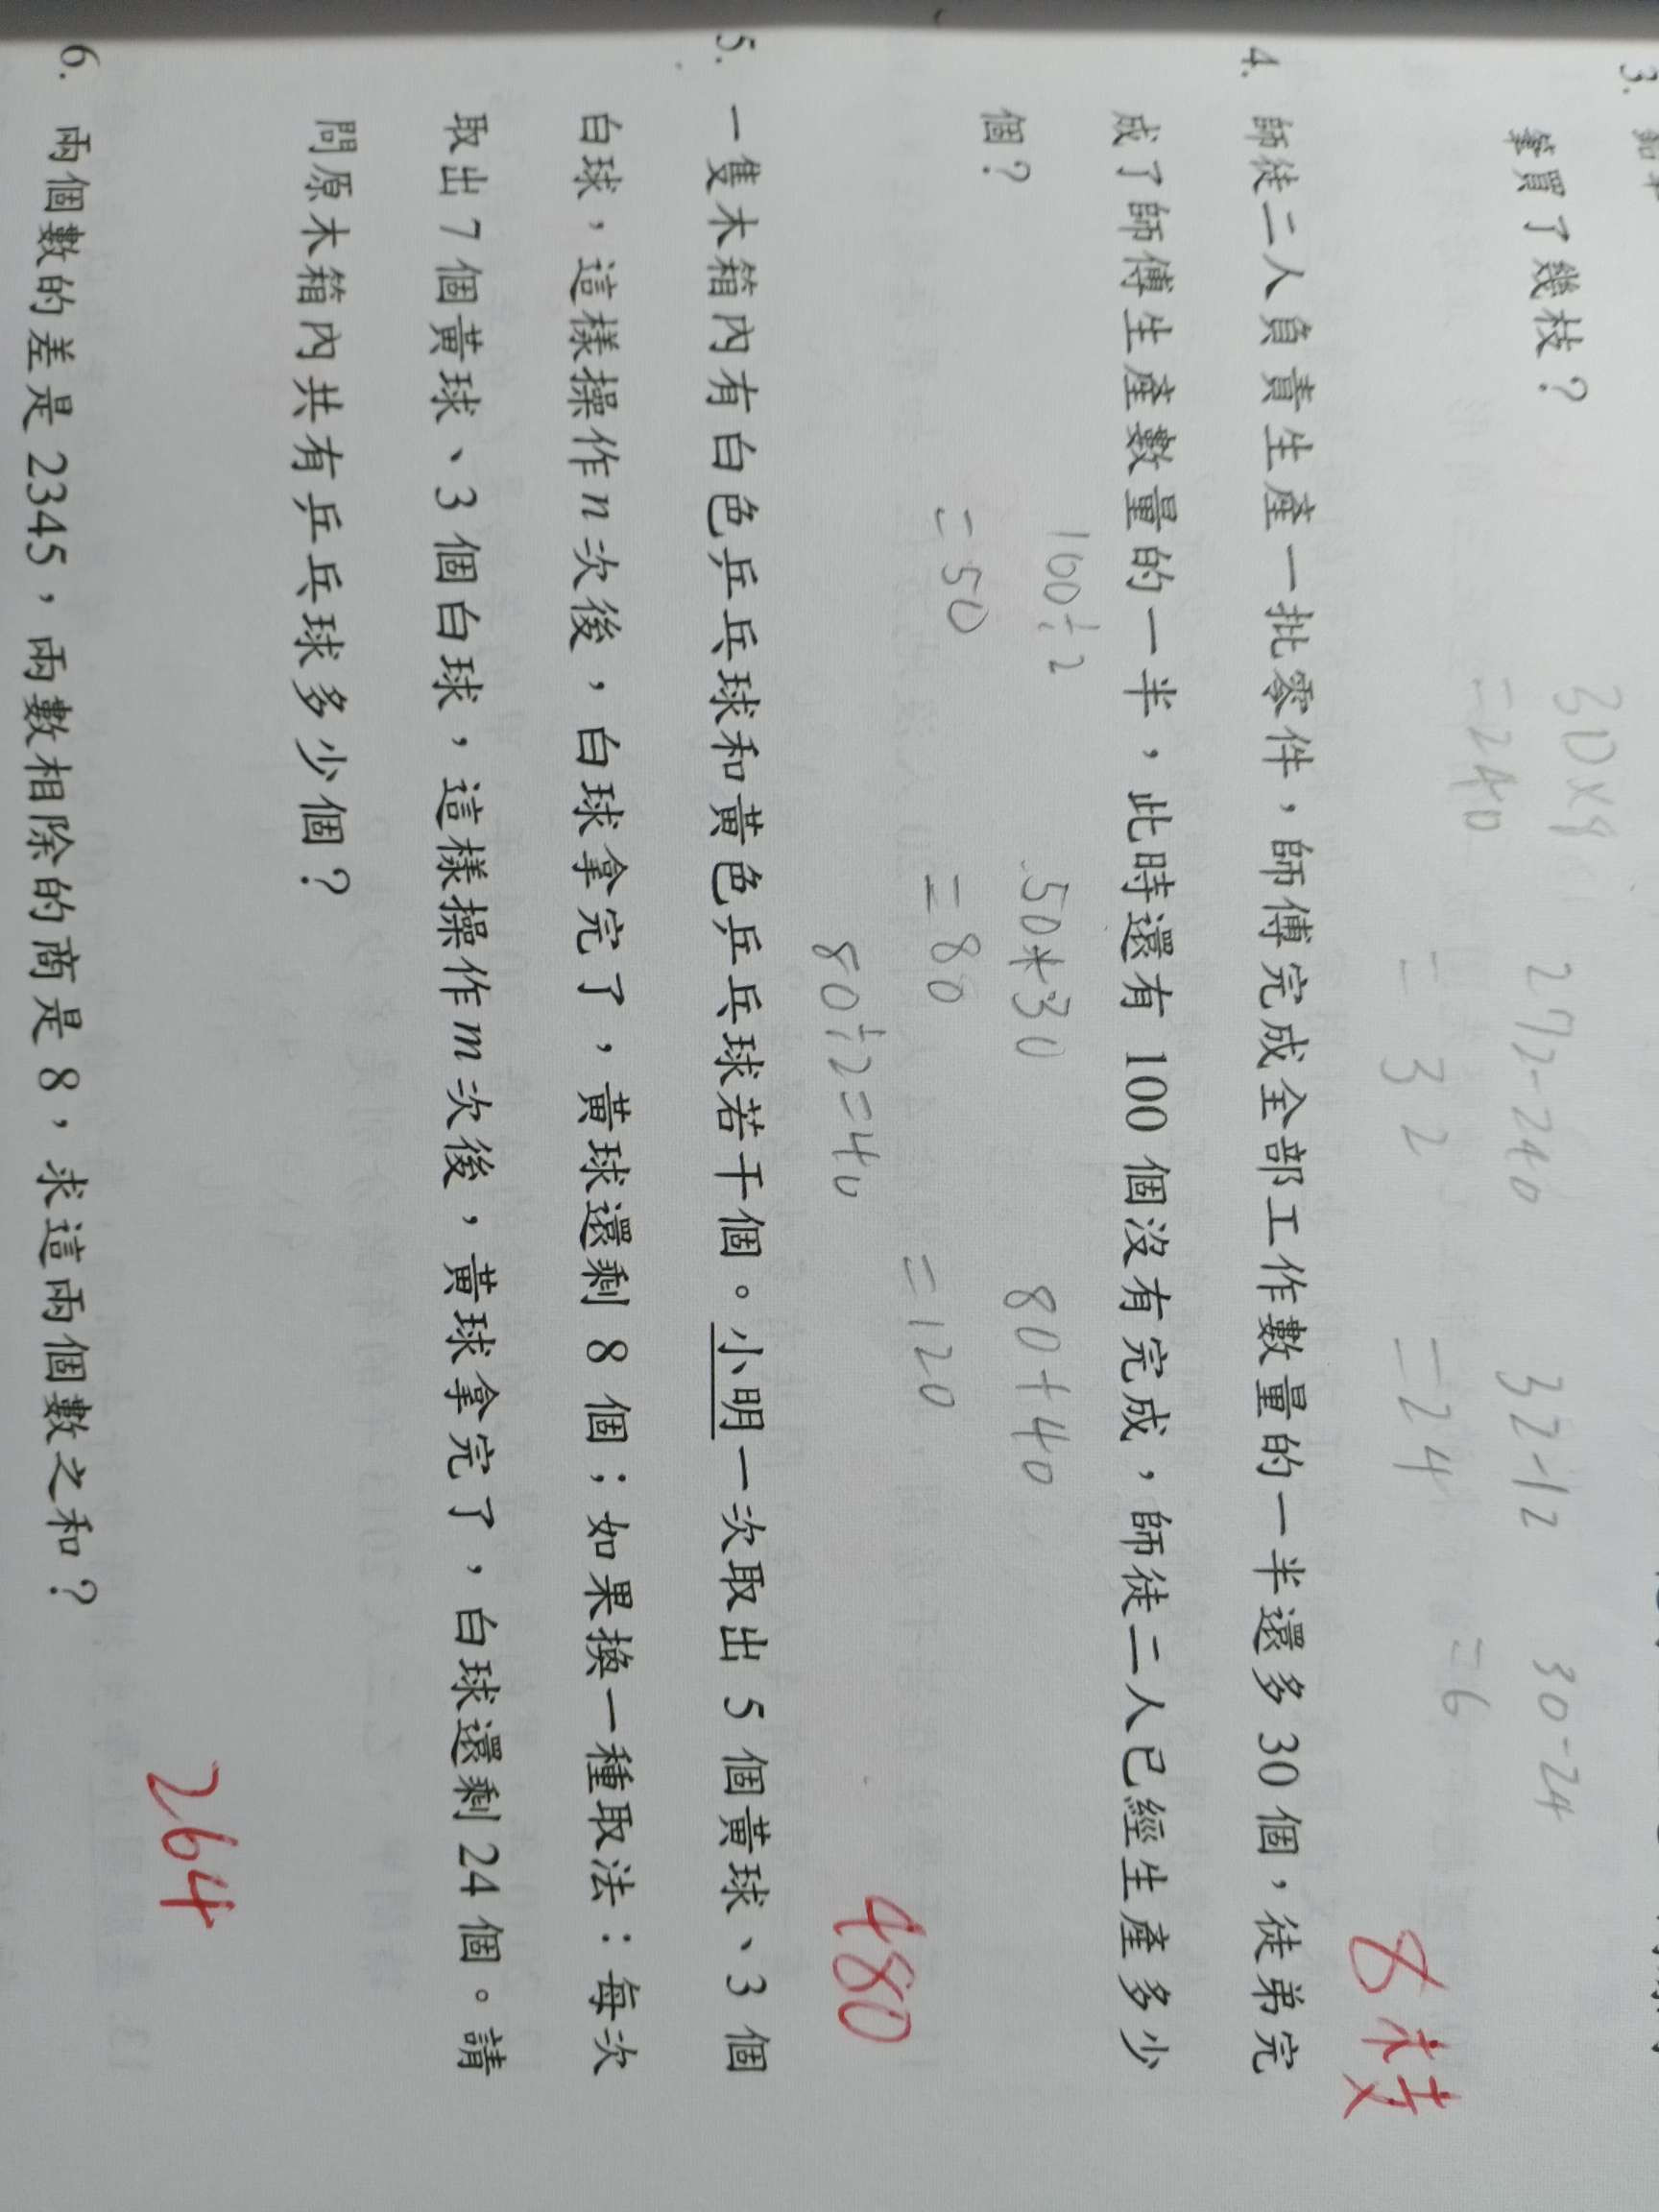 3.
筆買了幾枝？
30×8
=240
272-240
= 32
32-12
=24
30-24
=6
8枝
4. 師徒二人負責生產一批零件，師傅完成全部工作數量的一半還多 30 個，徒弟完
成了師傅生產數量的一半，此時還有 100 個沒有完成，師徒二人已經生產多少
個？
100÷2
=50
50+30
=80
80÷2=40
80+40
=120
480
5. 一隻木箱內有白色乒乓球和黃色乒乓球若干個。小明一次取出 5 個黃球、3 個
白球，這樣操作 n 次後，白球拿完了，黃球還剩 8 個；如果換一種取法：每次
取出 7 個黃球、3 個白球，這樣操作 m 次後，黃球拿完了，白球還剩 24 個。請
問原木箱內共有乒乓球多少個？
264
6. 兩個數的差是 2345，兩數相除的商是 8，求這兩個數之和？